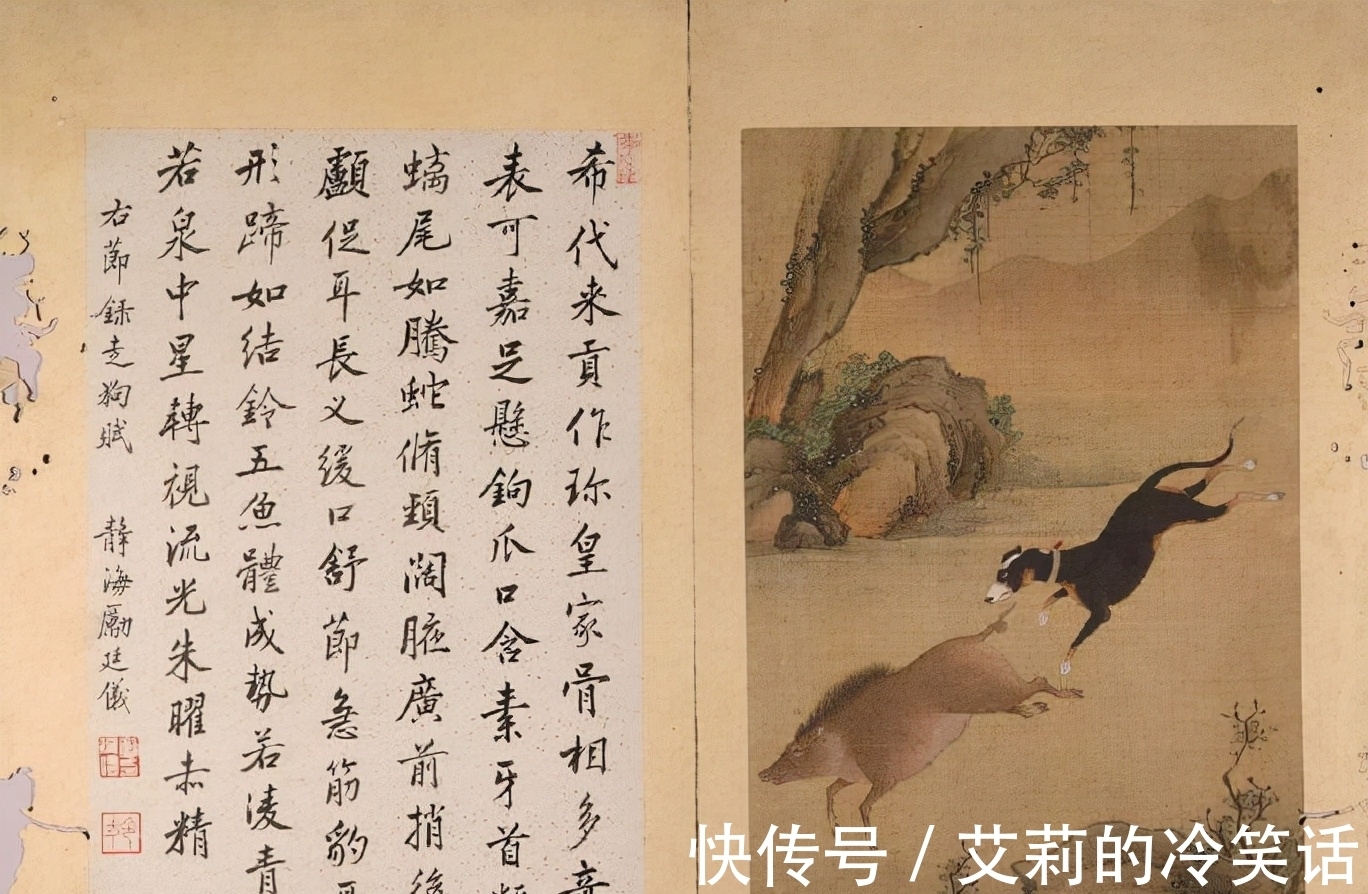 希代来貢作珍皇家骨相多
表可嘉足懸鉤爪口含素牙首
螭尾如騰蛇脩頸闊腋廣前捎後
顱促耳長乂緩口舒節急筋豹
形蹄如結鈴五魚體成勢若凌青
若泉中星轉視流光朱曜赤精
右節録走狗賦 静海勵廷儀
快传号 / 艾莉的冷笑话